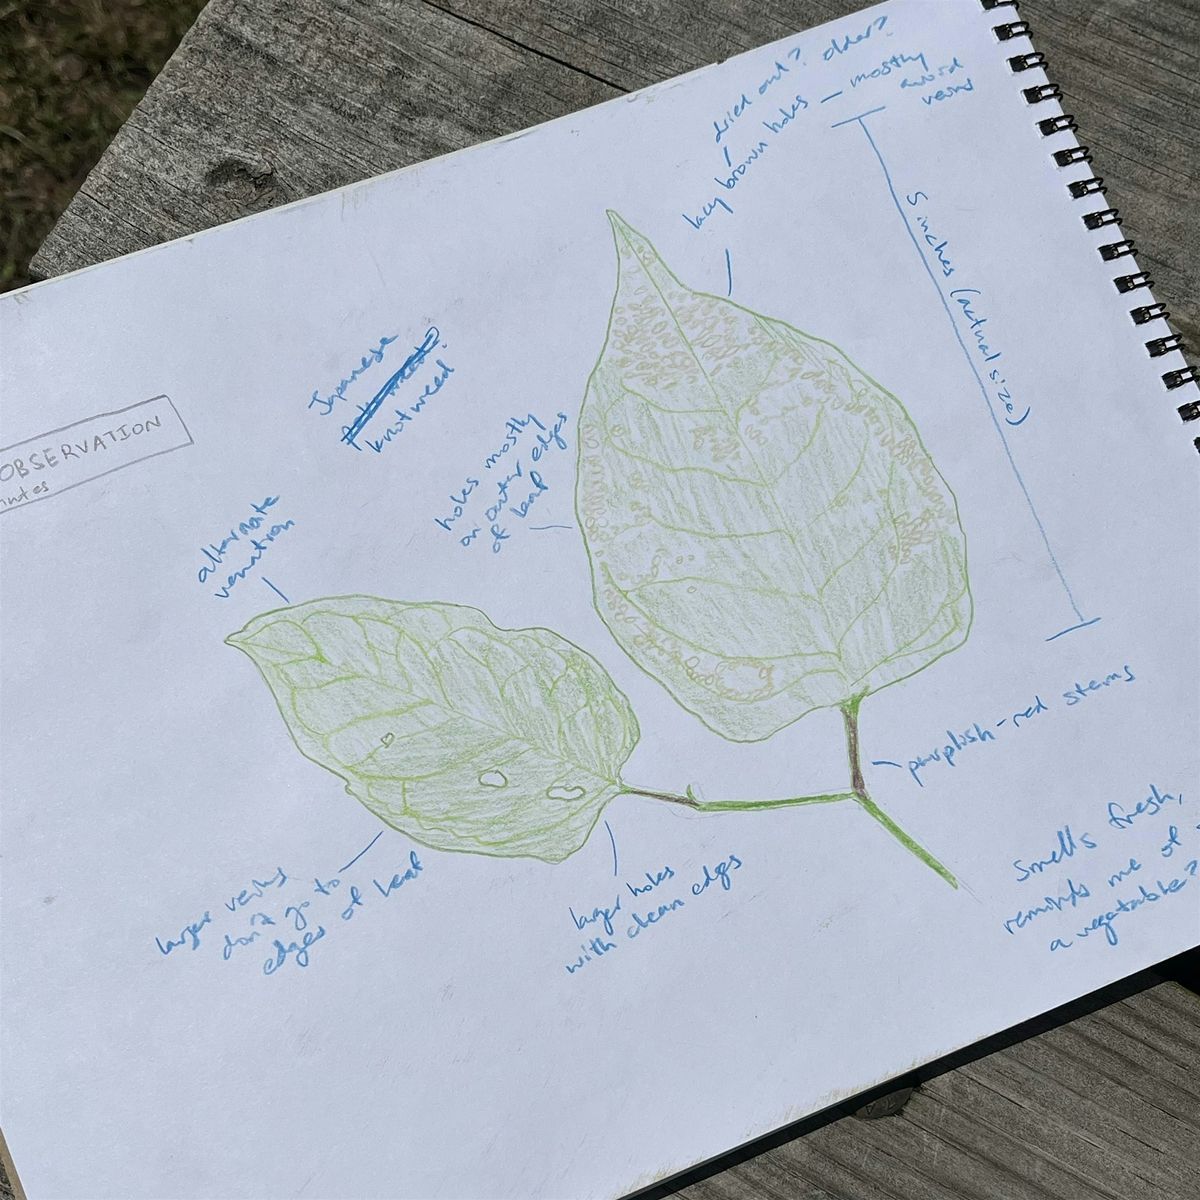 OBSERVATION
Japanese
knotweed
dried out? older?
lacy brown holes – mostly
avoid
veins
5 inches (actual size)
holes mostly
on outer edges
of leaf
alternate
venation
larger veins
don't go to
edges of leaf
larger holes
with clean edges
purplish-red stems
smells fresh,
reminds me of
a vegetable?